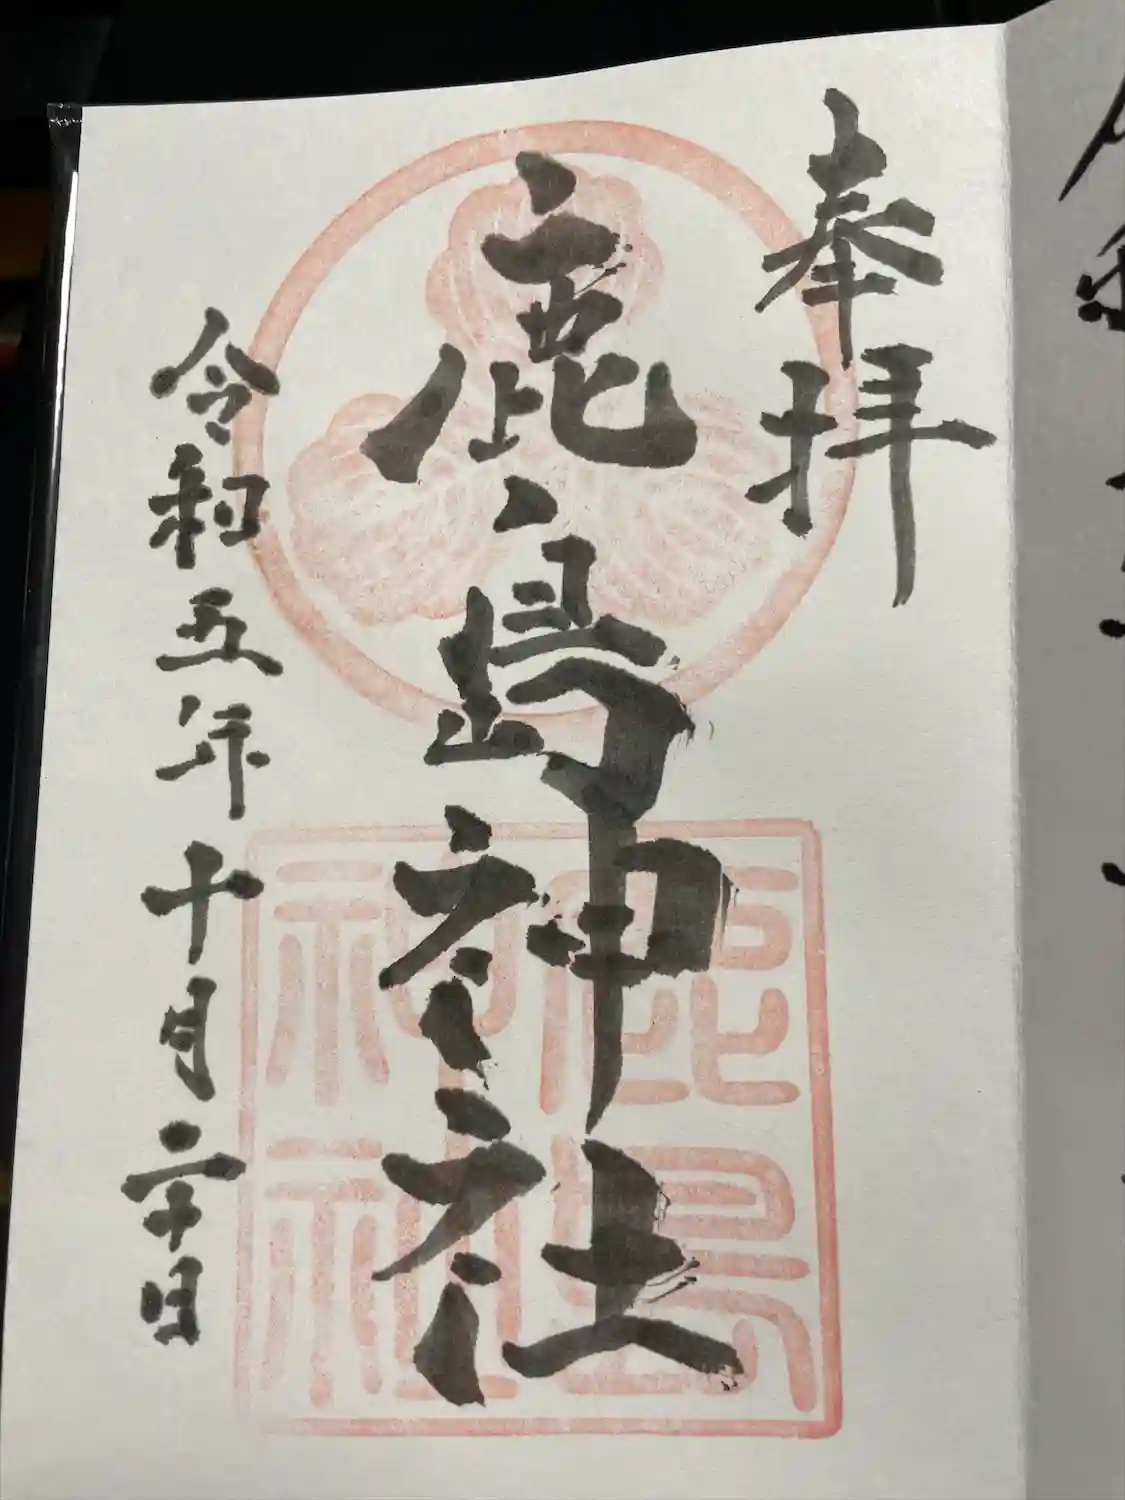 奉拝
鹿島神社
令和五年十月二十日
鹿島
神社